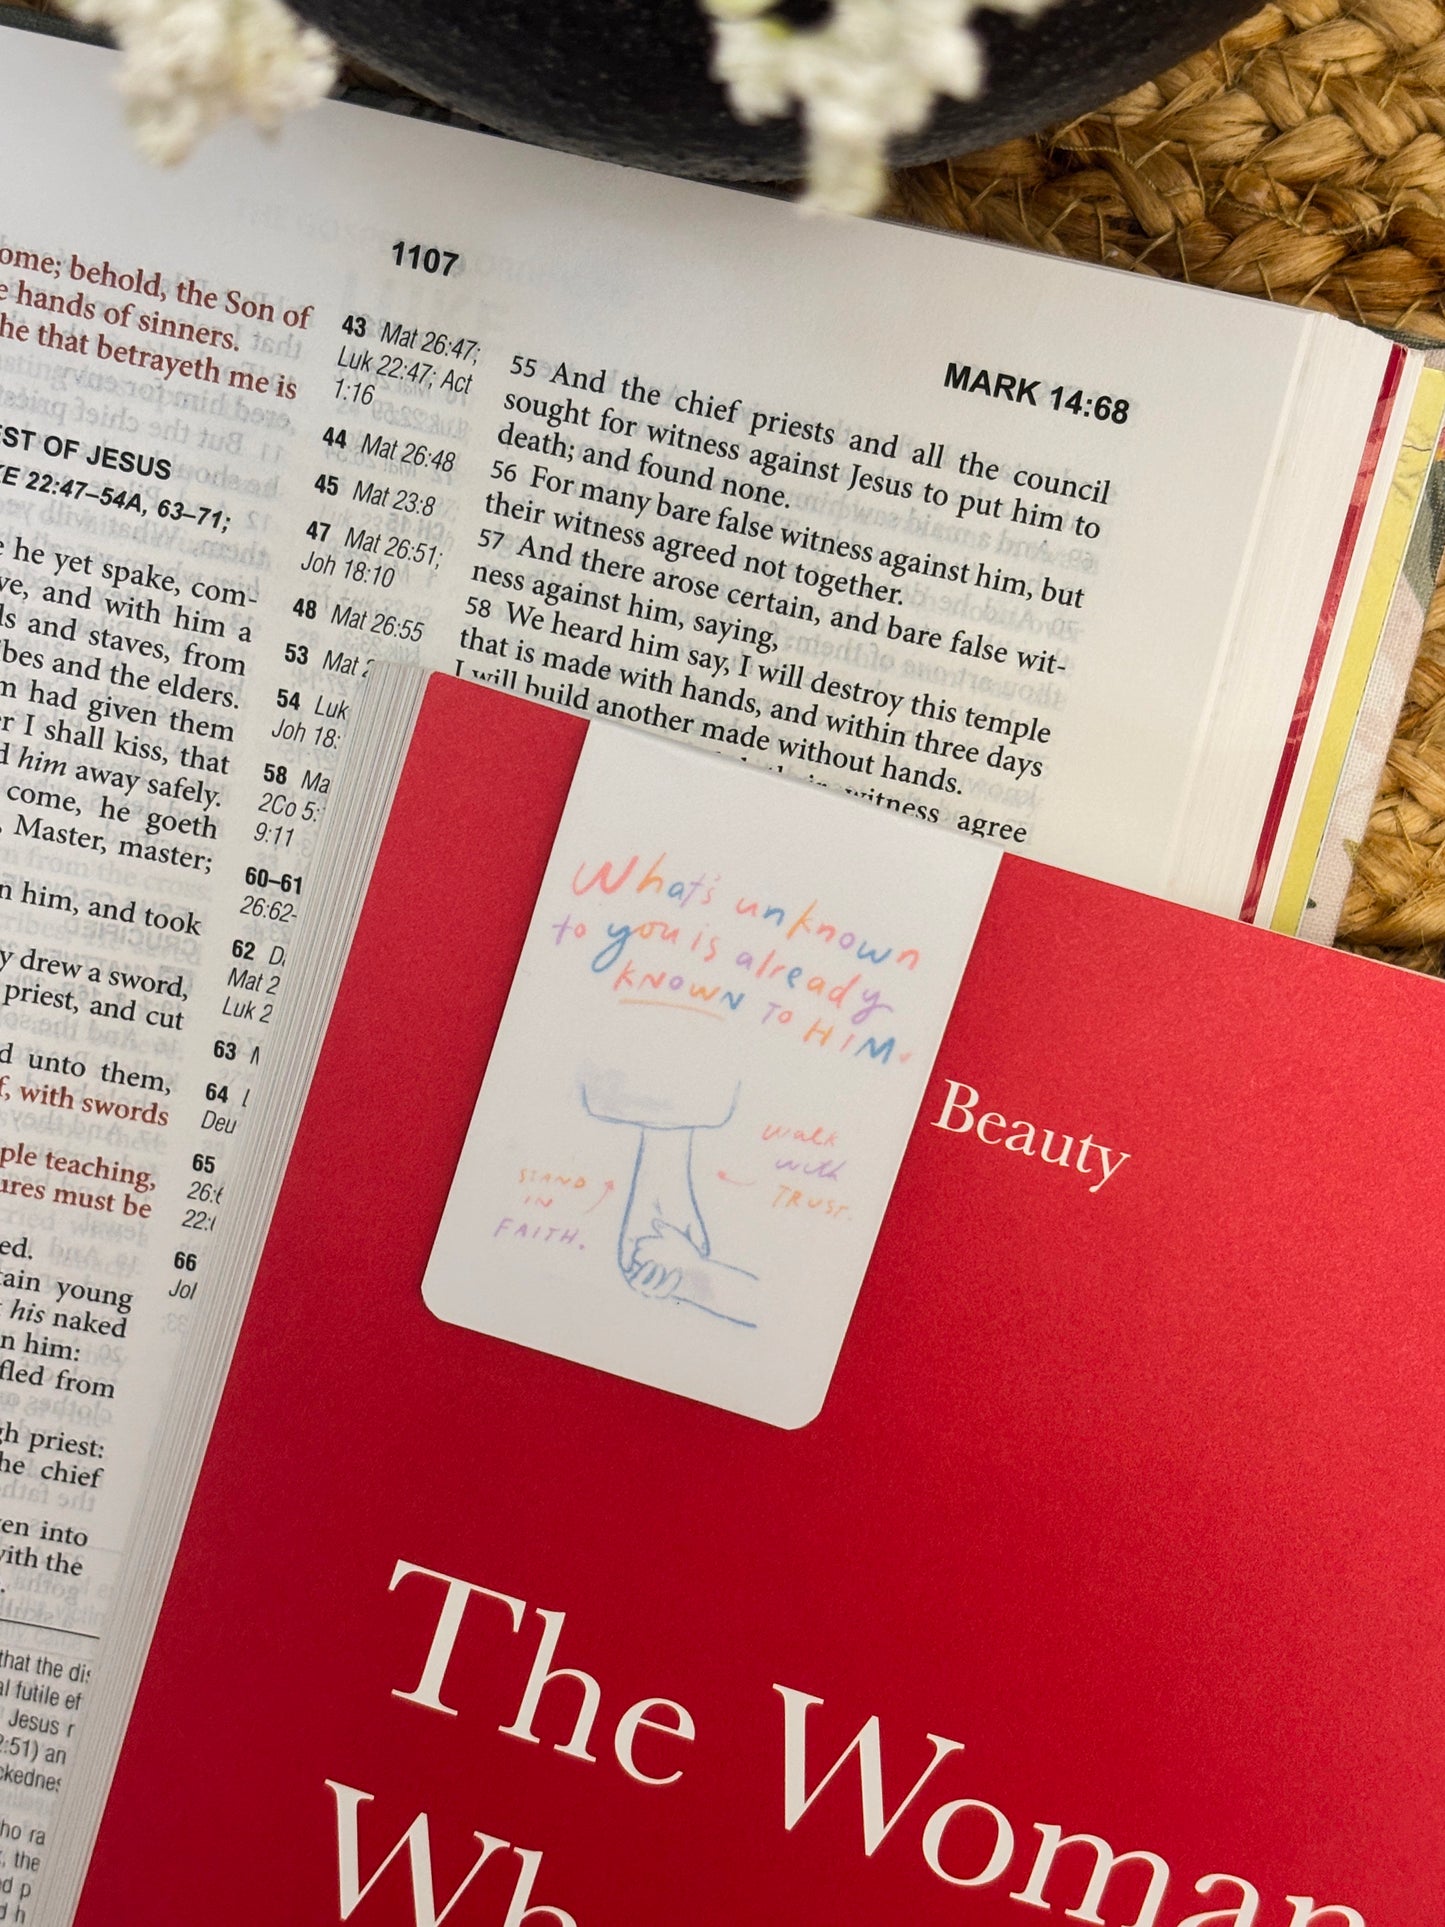 1107
MARK 14:68
ome; behold, the Son of
hands of sinners.
he that betrayeth me is
ST OF JESUS
22:47–54A, 63–71;
he yet spake, com-
and with him a
and staves, from
and the elders.
had given them
I shall kiss, that
him away safely.
come, he goeth
Master, master;
him, and took
drew a sword,
priest, and cut
unto them,
with swords
teaching,
must be
young
his naked
him:
fled from
priest:
chief
into
with the
that the
futile
Jesus
2:51) an
the
43 Mat 26:47;
Luk 22:47; Act
1:16
44 Mat 26:48
45 Mat 23:8
47 Mat 26:51;
Joh 18:10
48 Mat 26:55
53 Mat
54 Luk
Joh 18:
58 Ma
2Co 5:
9:11
60–61
26:62-
62
Mat 2
Luk 2
63
64
Deu
65
26:
22:
66
Jo
55 And the chief priests and all the council
sought for witness against Jesus to put him to
death; and found none.
56 For many bare false witness against him, but
their witness agreed not together.
57 And there arose certain, and bare false wit-
ness against him, saying,
58 We heard him say, I will destroy this temple
that is made with hands, and within three days
I will build another made without hands.
witness agree
What's unknown
to you is already
KNOWN TO HIM.
STAND
IN
FAITH.
walk
with
TRUST.
Beauty
The Woman
Wh